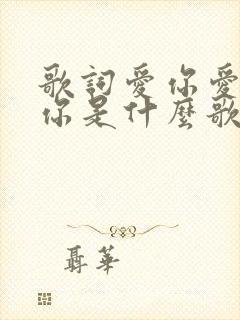 歌詞愛你愛
你是什麼歌
聶華